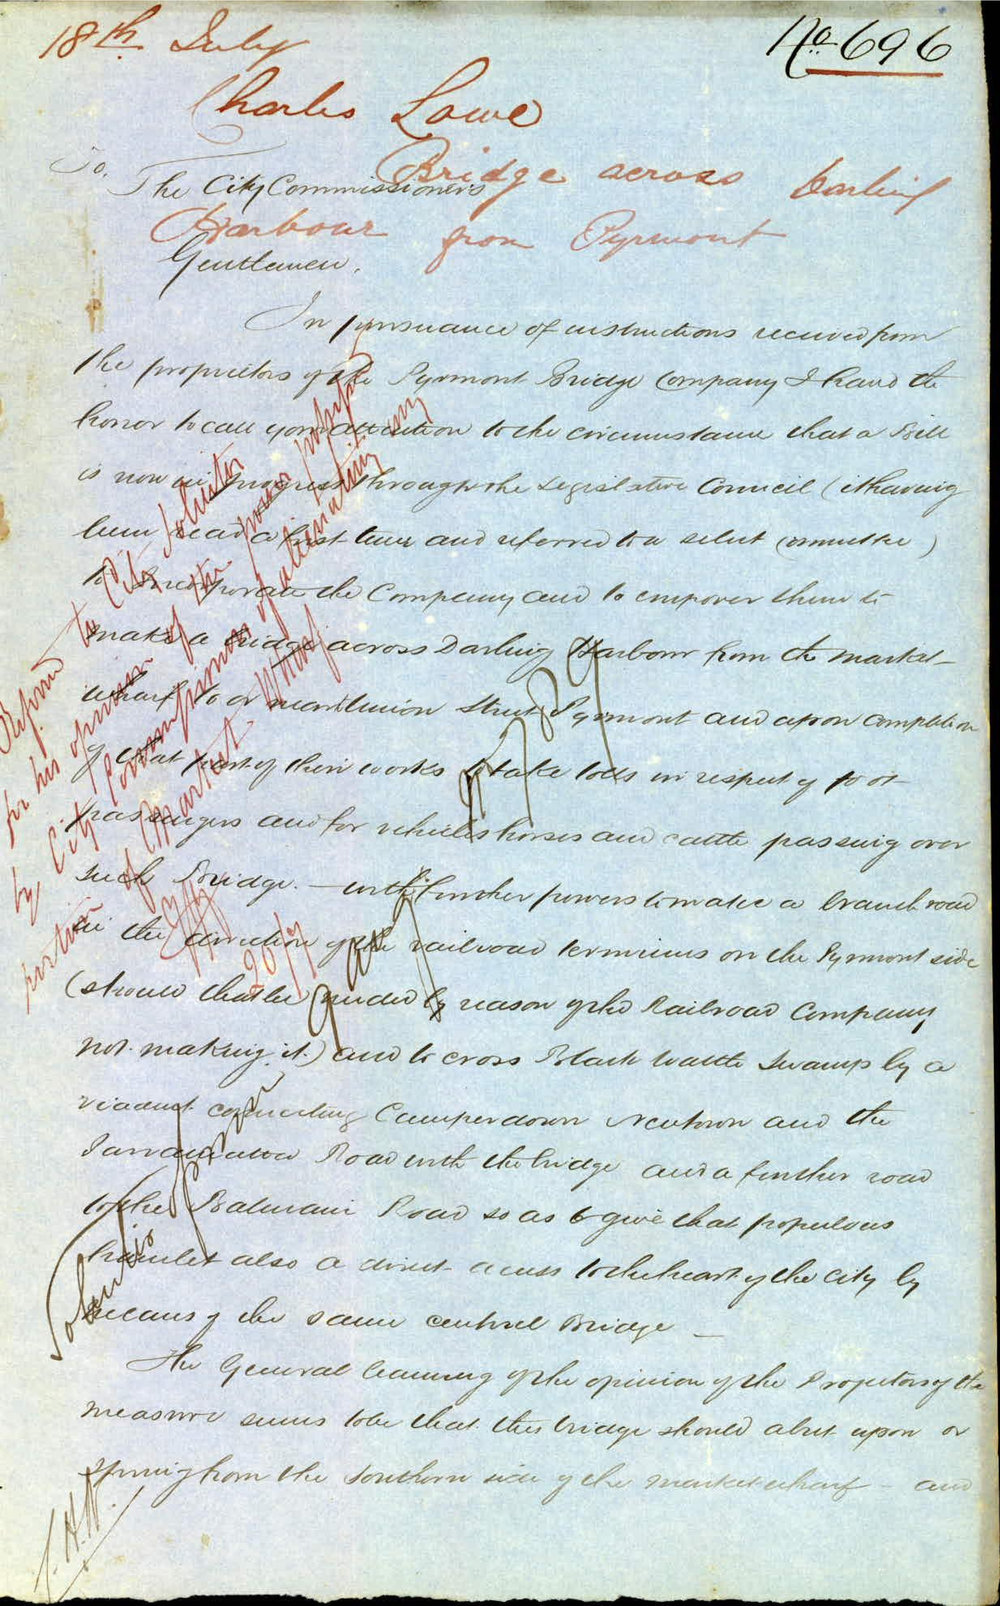 18th July
No 696
Charles Lowe
Bridge across Darling
Harbour from Pyrmont
To,
The City Commissioners
Gentlemen,
In pursuance of instructions received from
the proprietors of the Pyrmont Bridge Company I have the
honor to call your attention to the circumstance that a Bill
is now in progress through the Legislative Council (it having
been read a first time and referred to a select committee)
to incorporate the Company and to empower them to
make a bridge across Darling Harbour from the market
wharf to or near Union Street Pyrmont and upon completion
of that part of their works to take tolls in respect of foot
passengers and for vehicles horses and cattle passing over
such Bridge. — with further powers to make a branch road
in the direction of the railroad terminus on the Pyrmont side
(should that be needed by reason of the Railroad Company
not making it.) and to cross Black Wattle Swamp by a
viaduct connecting Camperdown Newtown and the
Parramatta Road with the bridge and a further road
to the Balmain Road so as to give that populous
hamlet also a direct access to the heart of the City by
means of the same central Bridge —
The General leaning of the opinion of the Projectors of the
measure seems to be that this bridge should abut upon or
spring from the Southern side of the market wharf - and
Referred to City Solicitor
for his opinion of the power possessed
by City Commissioners of alienating any
portion of Market Wharf
20/7
Solicitor's